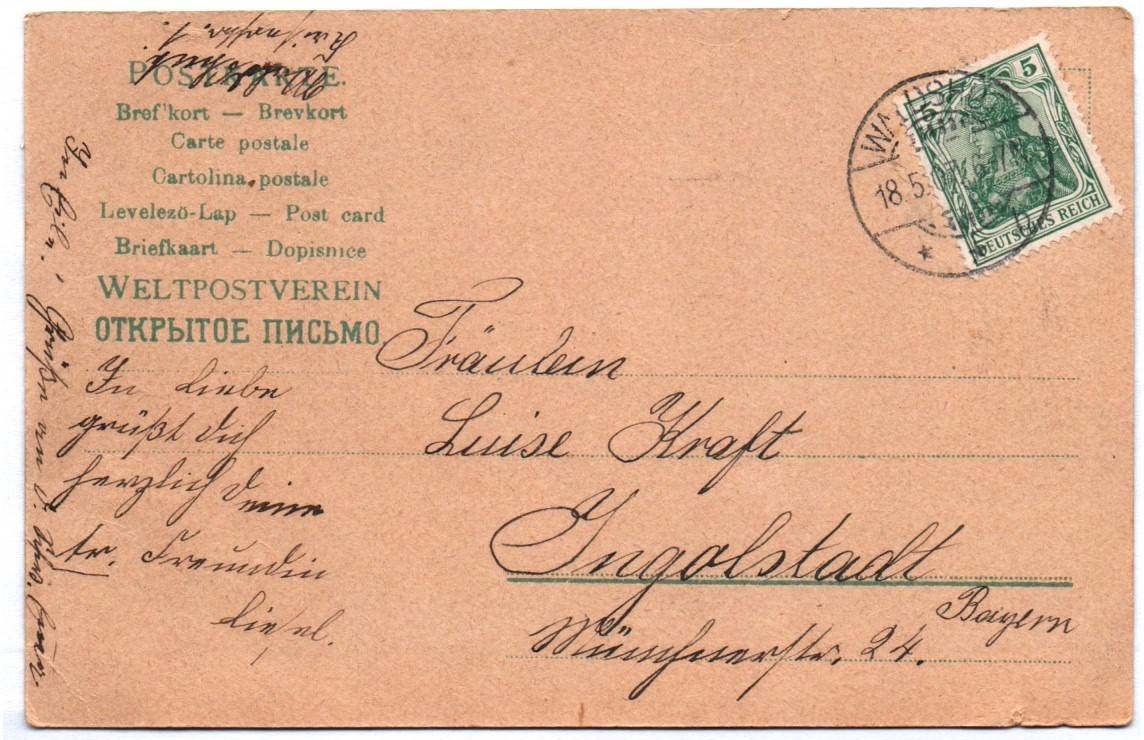 POSTKARTE.
Bref'kort — Brevkort
Carte postale
Cartolina postale
Levelezö-Lap — Post card
Briefkaart — Dopisnice
WELTPOSTVEREIN
ОТКРЫТОЕ ПИСЬМО.
5
5
DEUTSCHES REICH
18.5
Fräulein
Luise Kraft
Ingolstadt
Bayern
Münchnerstr. 24.
In Liebe
grüßt Dich
herzlich Deine
tr. Freundin
Liesel.
Grüße